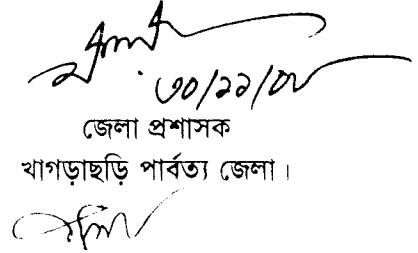 ৩০/১১/০৮
জেলা প্রশাসক
খাগড়াছড়ি পার্বত্য জেলা।